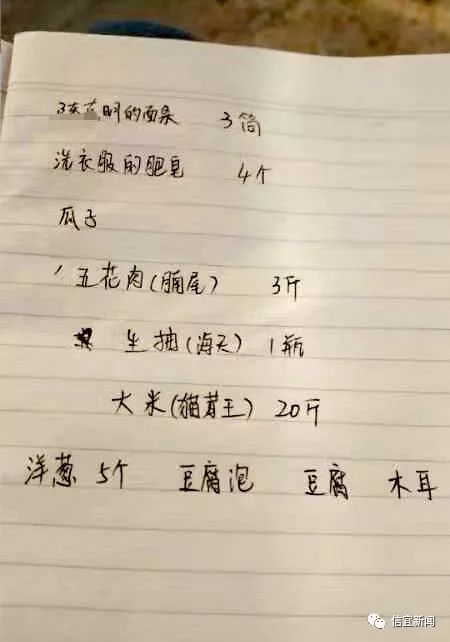 明的面条 3筒
洗衣服的肥皂 4个
瓜子
五花肉(腩尾) 3斤
生抽(海天) 1瓶
大米(猫茸王) 20斤
洋葱 5个 豆腐泡 豆腐 木耳
信宜新闻